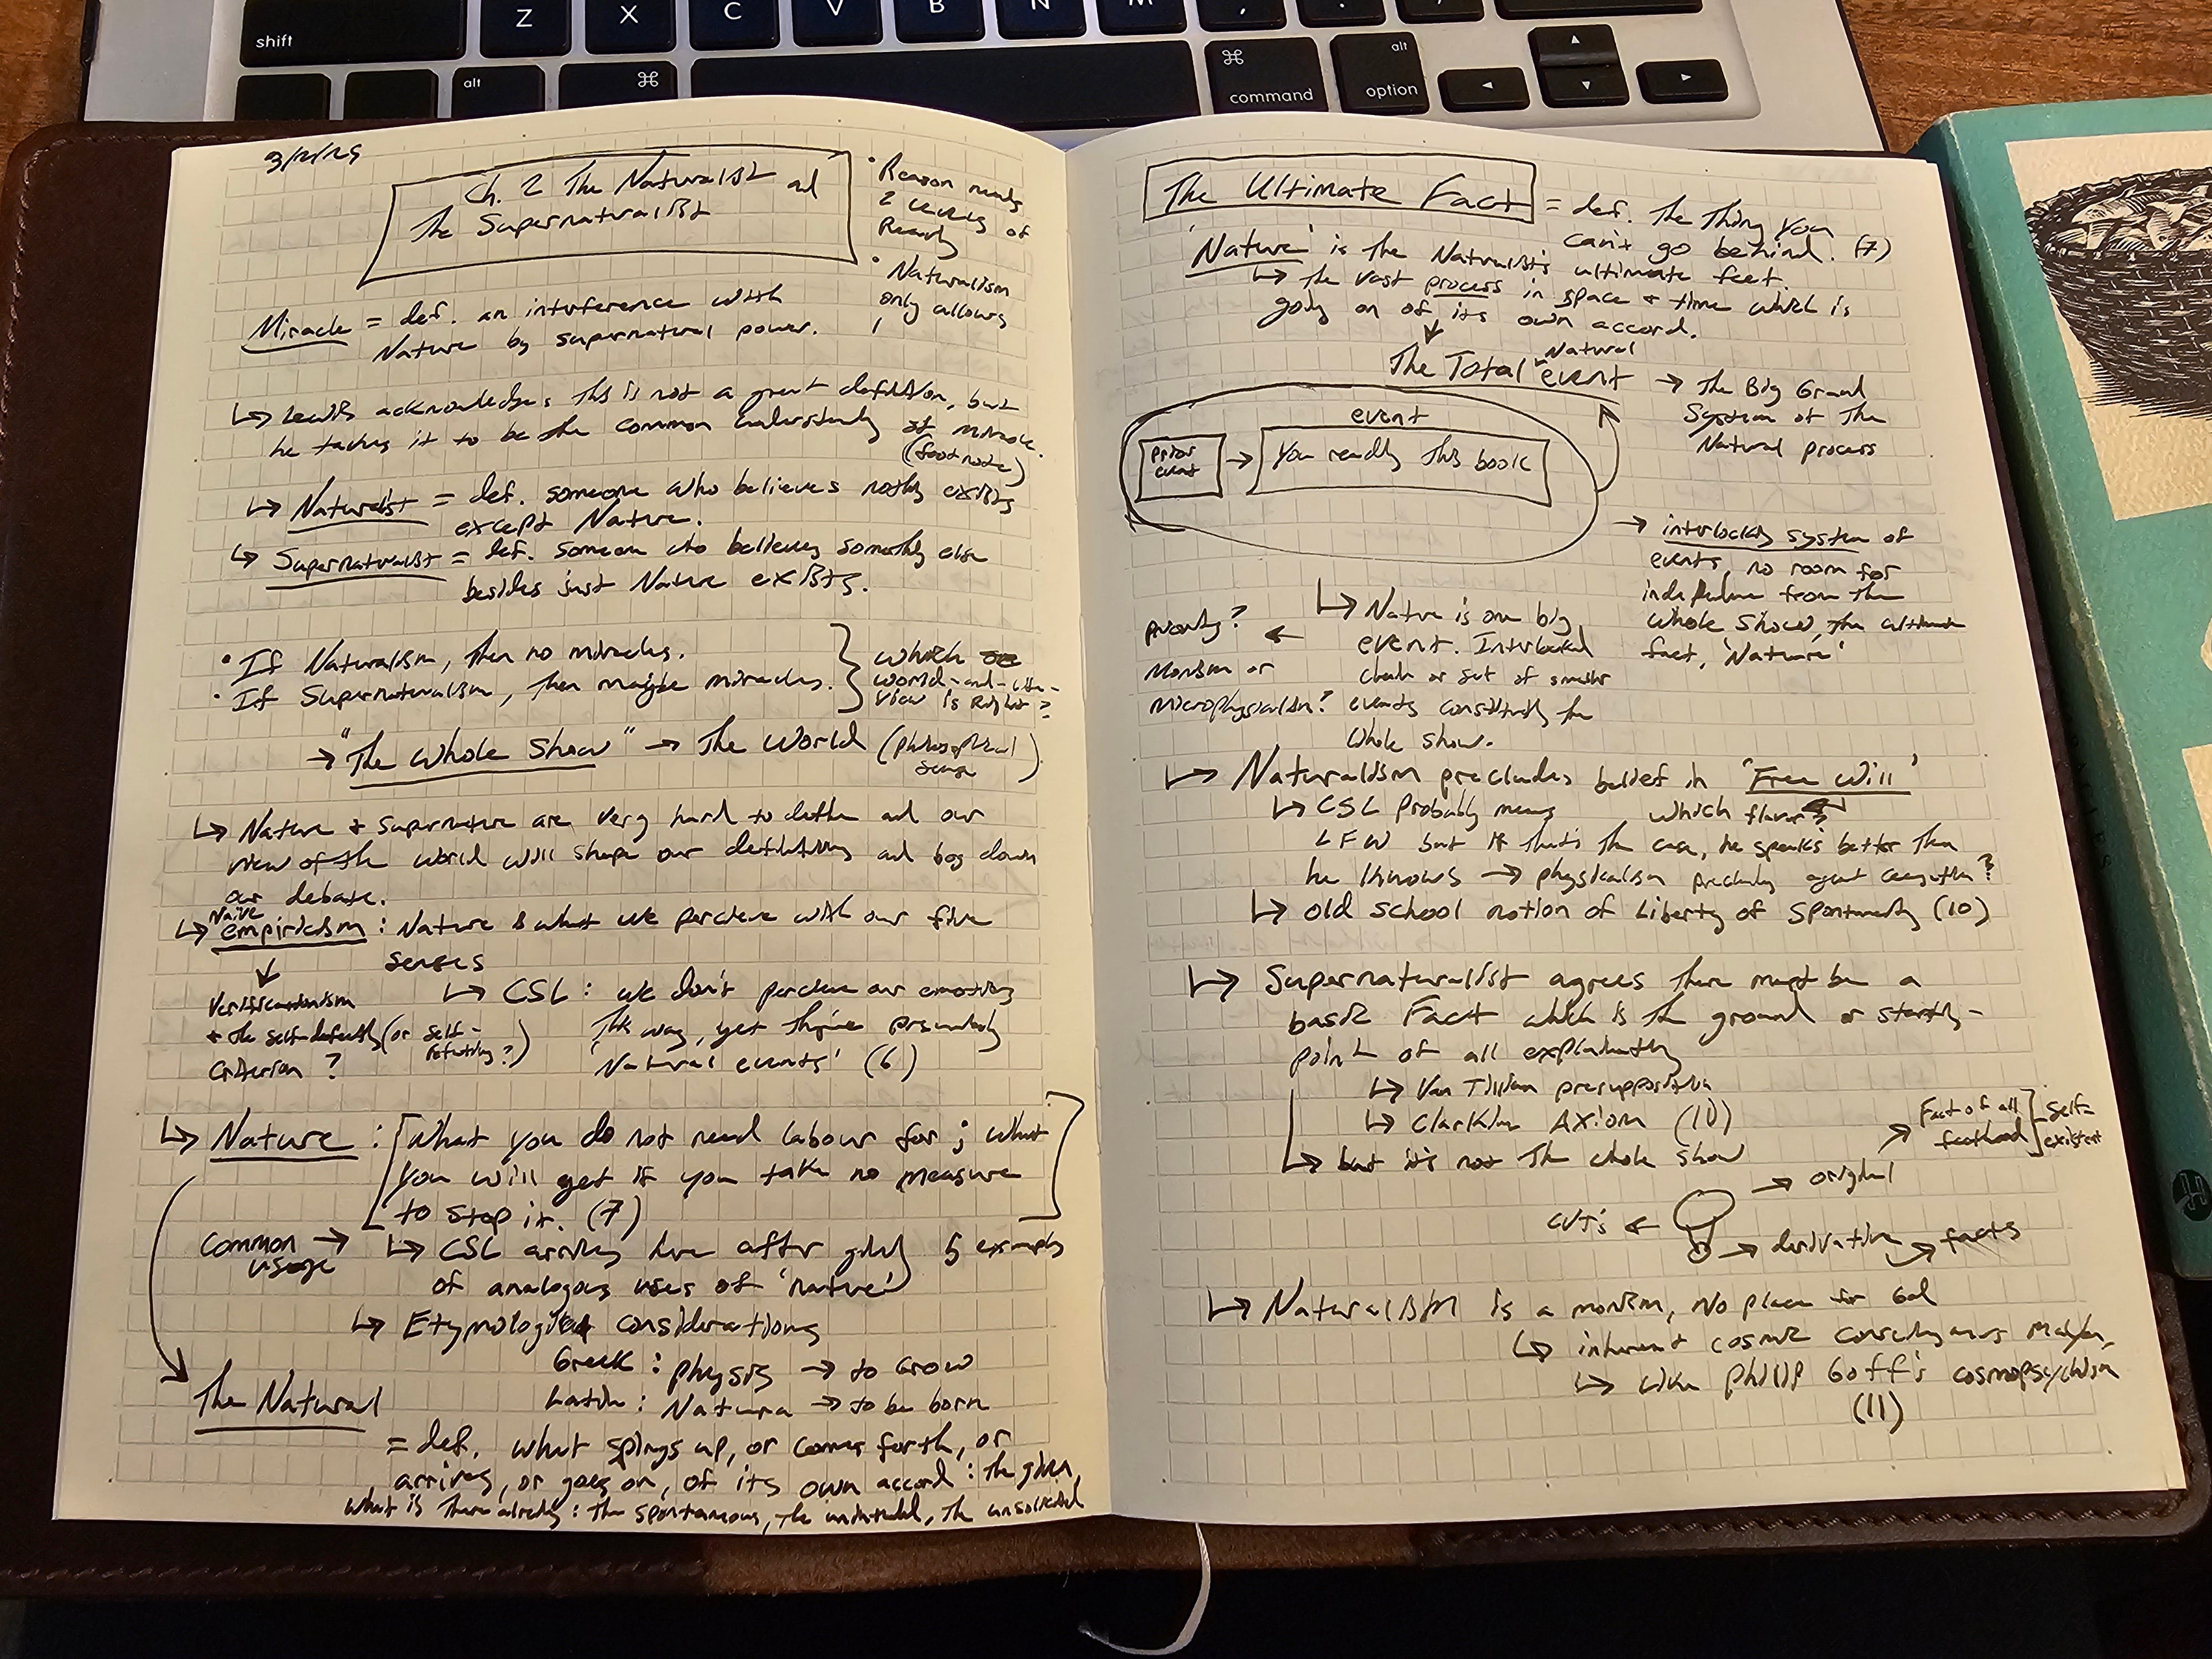 Z X C V B N M , .
shift
alt ⌘
⌘ command
alt option
3/12/25
Ch. 2 The Naturalist and
The Supernaturalist
• Reason needs
2 levels of
Reality
• Naturalism
only allows
1
Miracle = def. an interference with
Nature by supernatural power.
↳ Lewis acknowledges this is not a great definition, but
he takes it to be the common understanding of miracle.
(footnote)
↳ Naturalist = def. someone who believes nothing exists
except Nature.
↳ Supernaturalist = def. someone who believes something else
besides just Nature exists.
• If Naturalism, then no miracles.
• If Supernaturalism, then maybe miracles.
which
world-and-life-
view is Right?
→ "The Whole Show" → The World (philosophical
sense)
↳ Nature + supernature are very hard to define and our
view of the world will shape our definitions and bog down
our debate.
↳ Naive empiricism : Nature is what we perceive with our five
senses
↓
Verificationism
+ the self-defeating (or self-
refuting?)
criterion?
↳ CSL : we don't perceive our emotions
this way, yet they're presumably
'Natural events' (6)
↳ Nature : [What you do not need labour for ; what
you will get if you take no measure
to stop it. (7)]
Common → usage
↳ CSL arrives here after giving 5 examples
of analogous uses of 'nature'
↳ Etymological considerations
Greek : physis → to Grow
Latin : Natura → to be born
The Natural
= def. what springs up, or comes forth, or
arrives, or goes on, of its own accord : the given,
what is there already : the spontaneous, the unintended, the unsolicited
The Ultimate Fact = def. The thing you
can't go behind. (7)
'Nature' is the Naturalist's ultimate fact.
↳ the vast process in space + time which is
going on of its own accord.
↓
The Total Natural event → The Big Grand
System of the
Natural process
event
prior
event → You reading this book
→ interlocking system of
events, no room for
independence from the
whole show, the ultimate
fact, 'Nature'
↳ Nature is one big
event. Interlocked
chain or set of smaller
events constituting the
whole show.
priority? ←
Monism or
microphysicalism?
↳ Naturalism precludes belief in 'Free Will'
↳ CSL probably means which flavor?
LFW but if that's the case, he speaks better than
he knows → physicalism precludes agent causation?
↳ old school notion of Liberty of spontaneity (10)
↳ Supernaturalist agrees there must be a
basic Fact which is the ground or starting-
point of all explanations
↳ Van Tillian presupposition
↳ Clarkian Axiom (10)
↳ but it's not the whole show
→ original → Fact of all
facthood] self-
existent
CVT's ← → derivative → facts
↳ Naturalism is a monism, no place for God
↳ inherent cosmic consciousness maybe,
↳ like Philip Goff's cosmopsychism
(11)